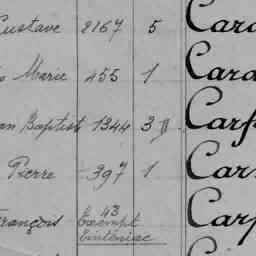 Gustave 2167 5 Card
Marie 455 1 Card
an Baptist 1344 3 Carf
Pierre 397 1 Car
François # 43 Carp
Exempt